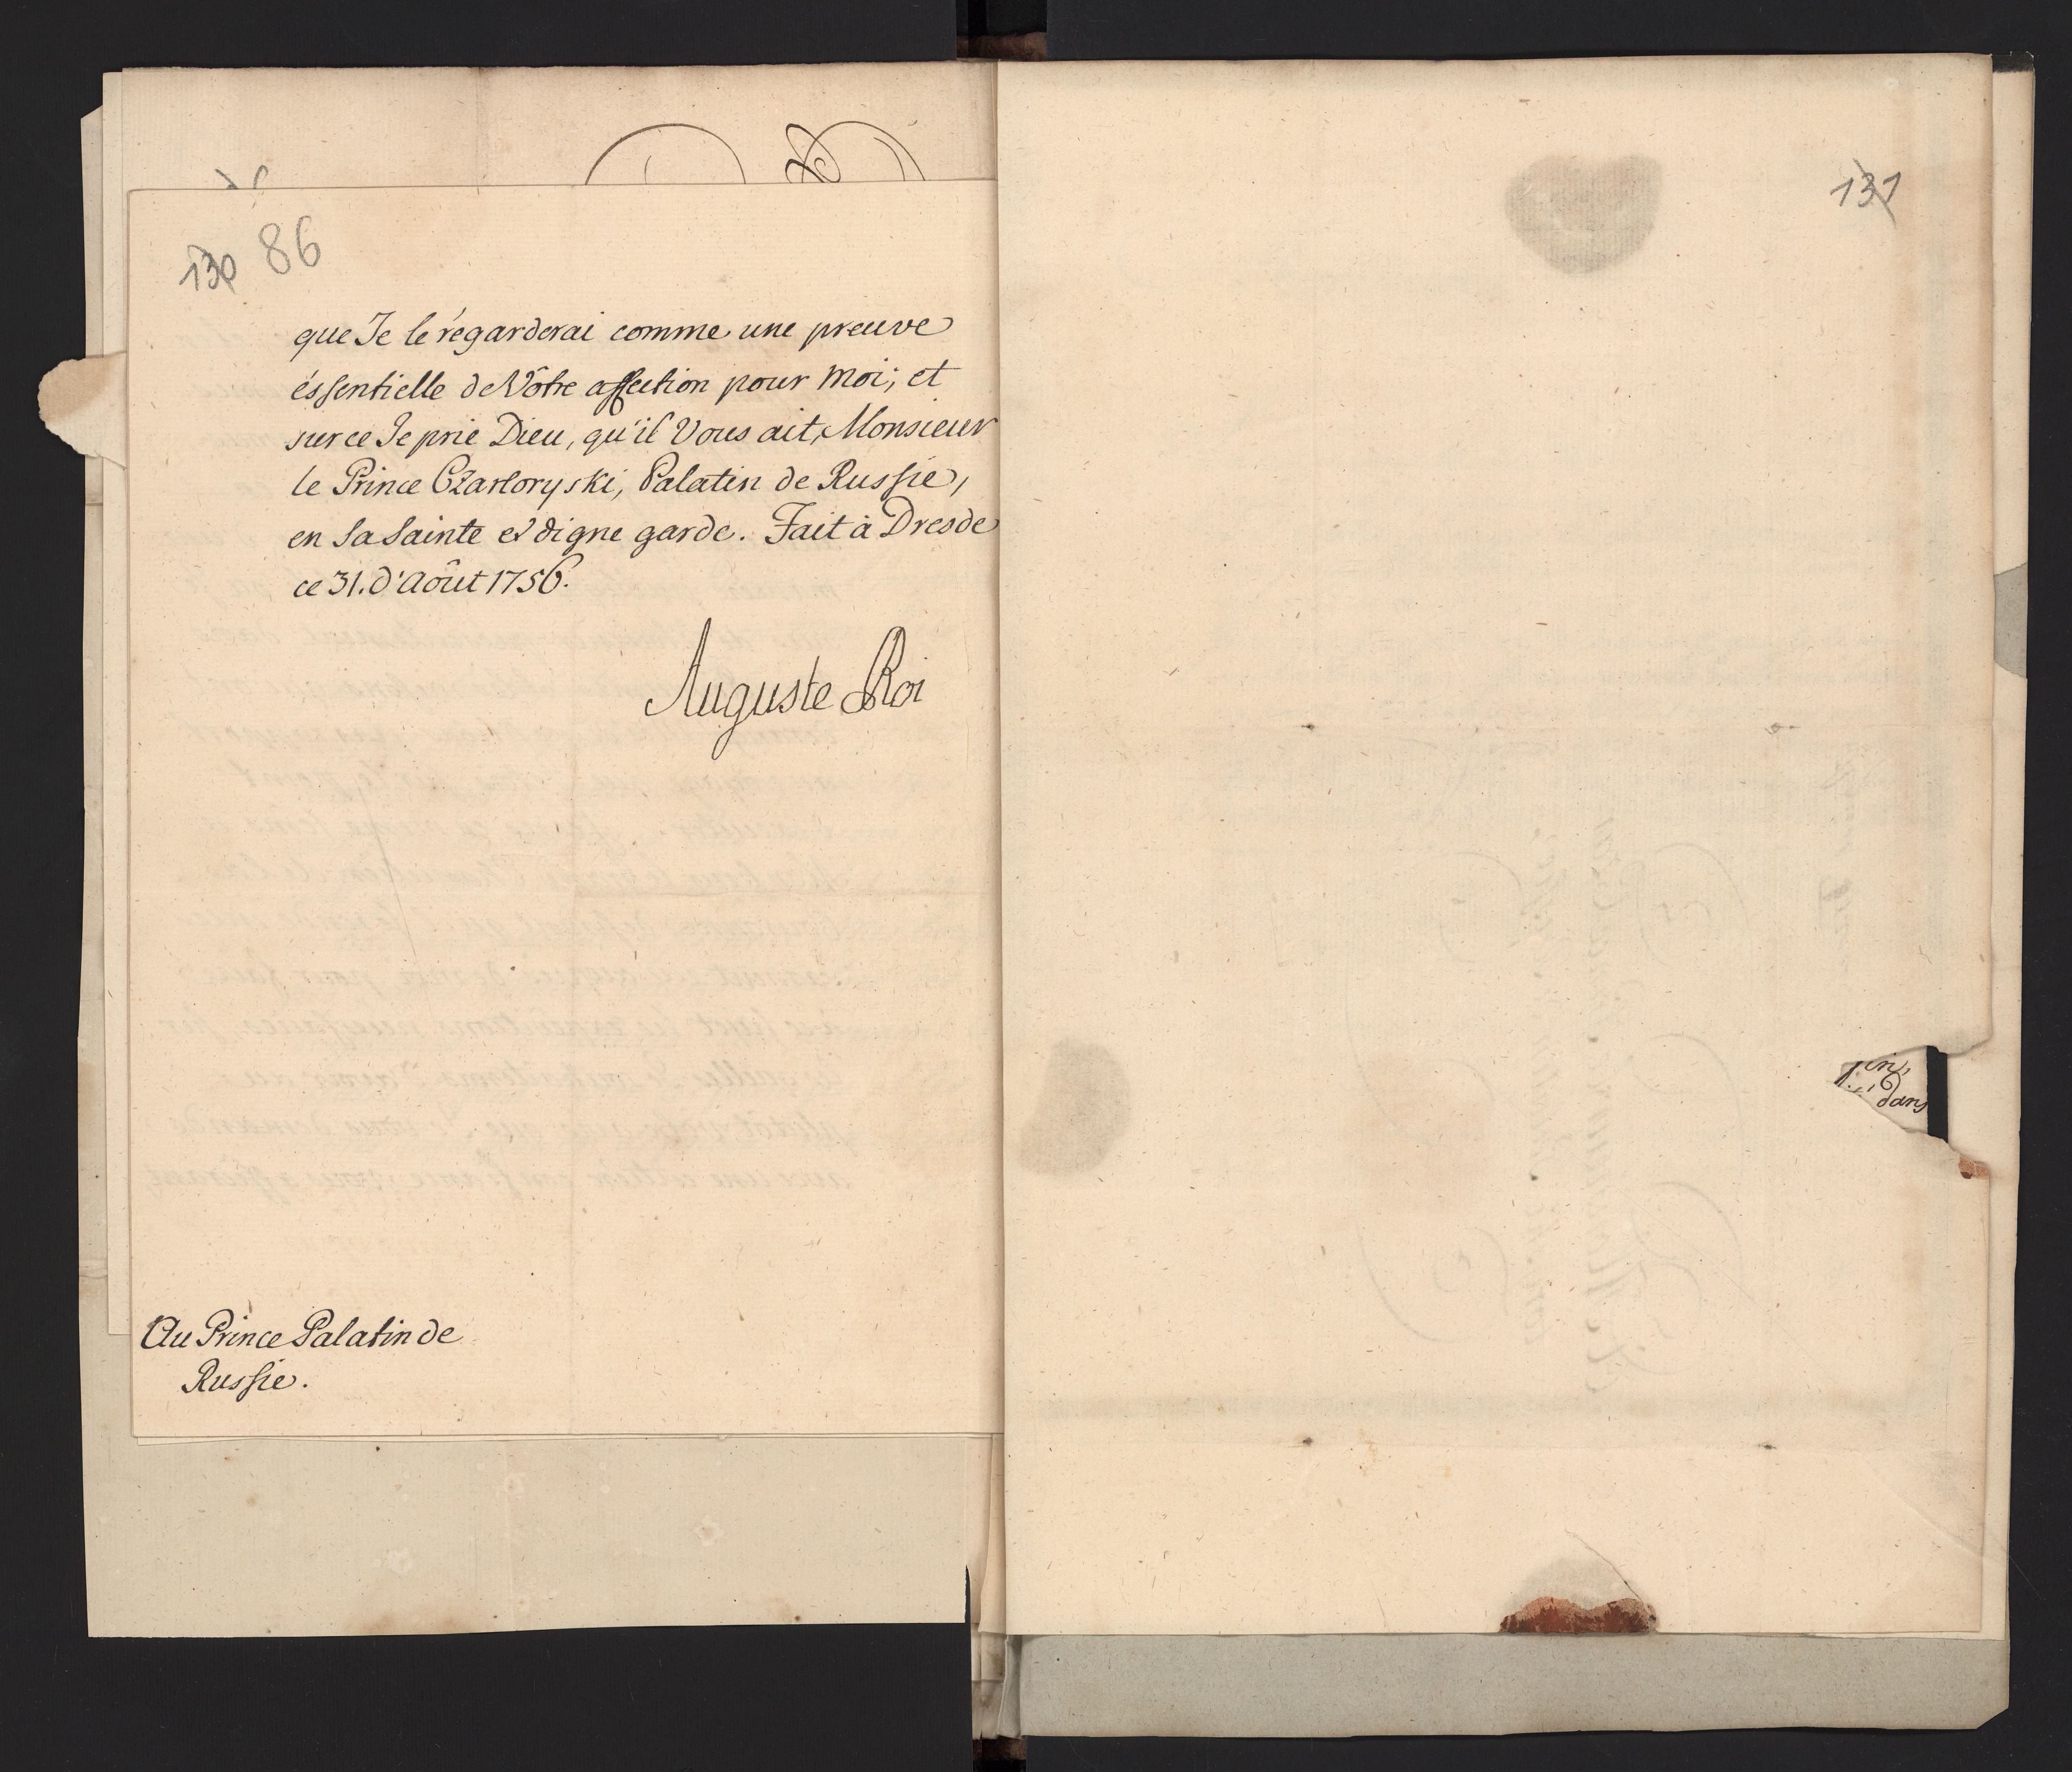 130 86
que Je le régarderai comme une preuve
éssentielle de Vôtre affection pour Moi; et
sur ce Je prie Dieu, qu'il Vous ait, Monsieur
le Prince Czartoryski, Palatin de Russie,
en Sa Sainte et digne garde. Fait à Dresde
ce 31. d'Aôut 1756.
Auguste Roi
Au Prince Palatin de
Russie.
131
dans